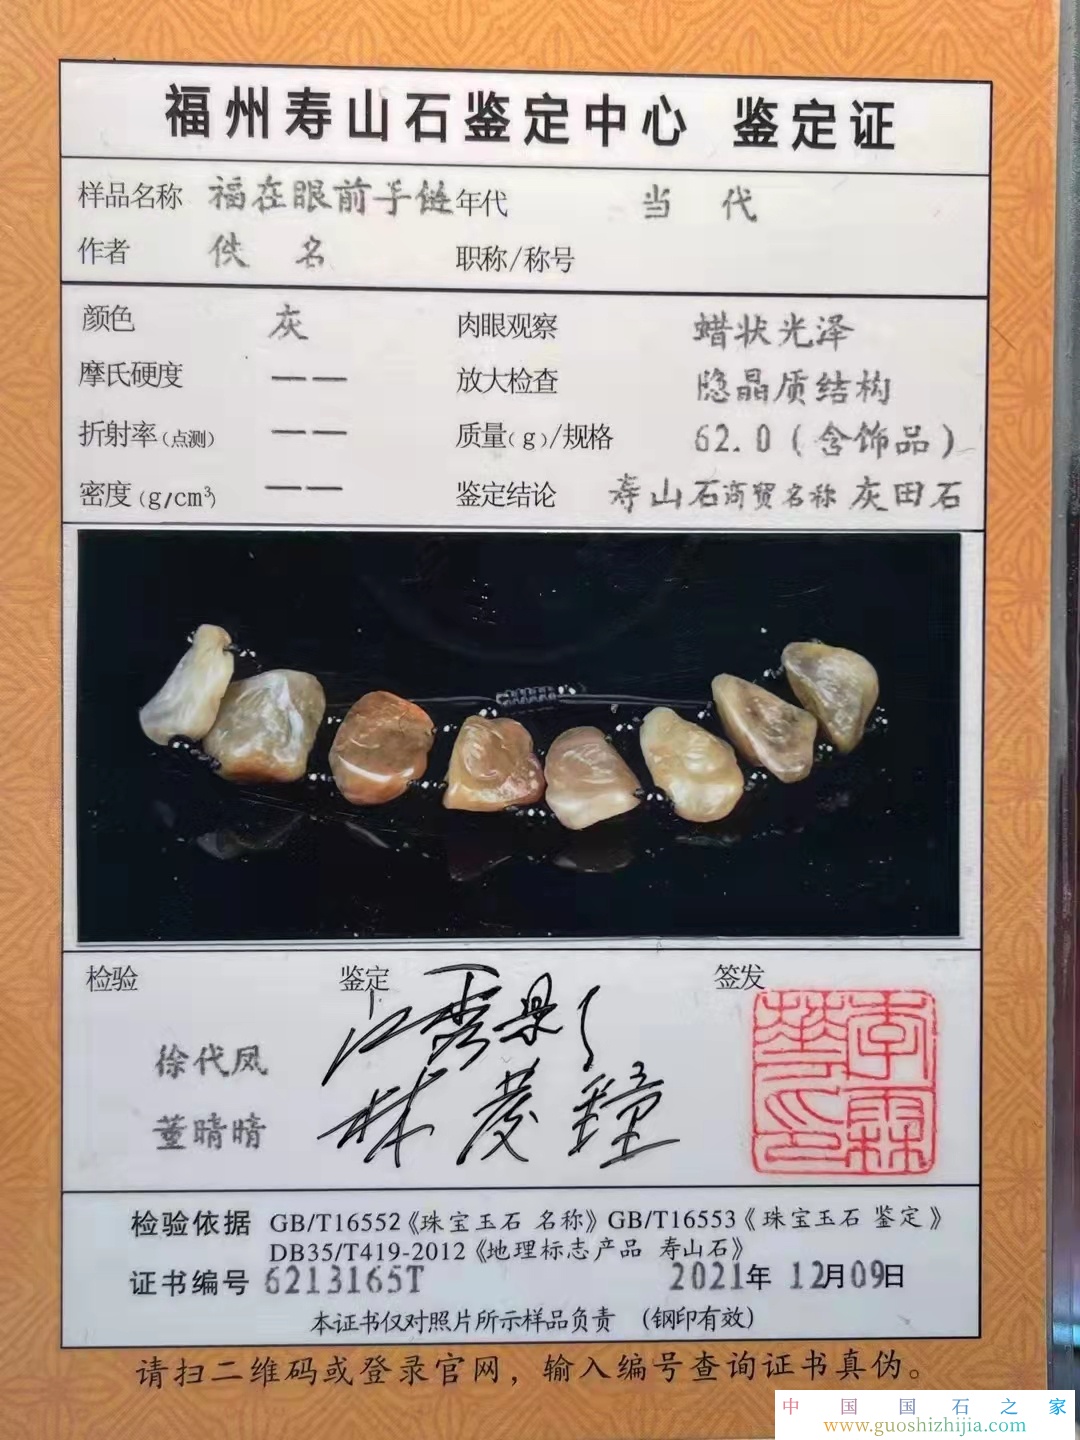 福州寿山石鉴定中心 鉴定证
样品名称 福在眼前手链 年代 当代
作者 佚名 职称/称号
颜色 灰 肉眼观察 蜡状光泽
摩氏硬度 —— 放大检查 隐晶质结构
折射率(点测) —— 质量(g)/规格 62.0(含饰品)
密度(g/cm³) —— 鉴定结论 寿山石商贸名称 灰田石
检验 鉴定 签发
徐代凤
董晴晴
检验依据 GB/T16552《珠宝玉石 名称》GB/T16553《珠宝玉石 鉴定》
DB35/T419-2012《地理标志产品 寿山石》
证书编号 6213165T 2021年 12月09日
本证书仅对照片所示样品负责 (钢印有效)
请扫二维码或登录官网，输入编号查询证书真伪。
中国国石之家
www.guoshizhijia.com